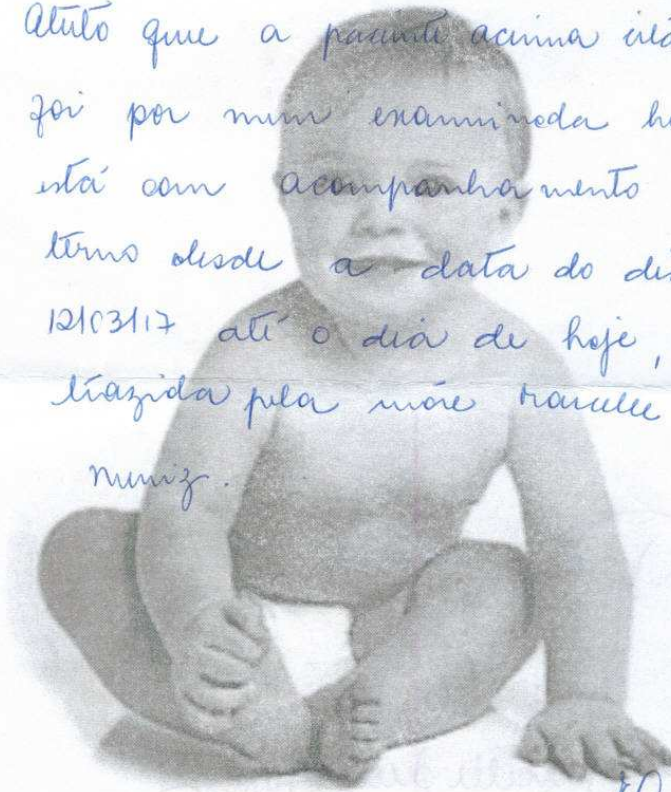 Atesto que a paciente acima
foi por mim examinada
está com acompanhamento
terno desde a data do
12/03/17 até o dia de hoje,
trazida pela mãe
Muniz.